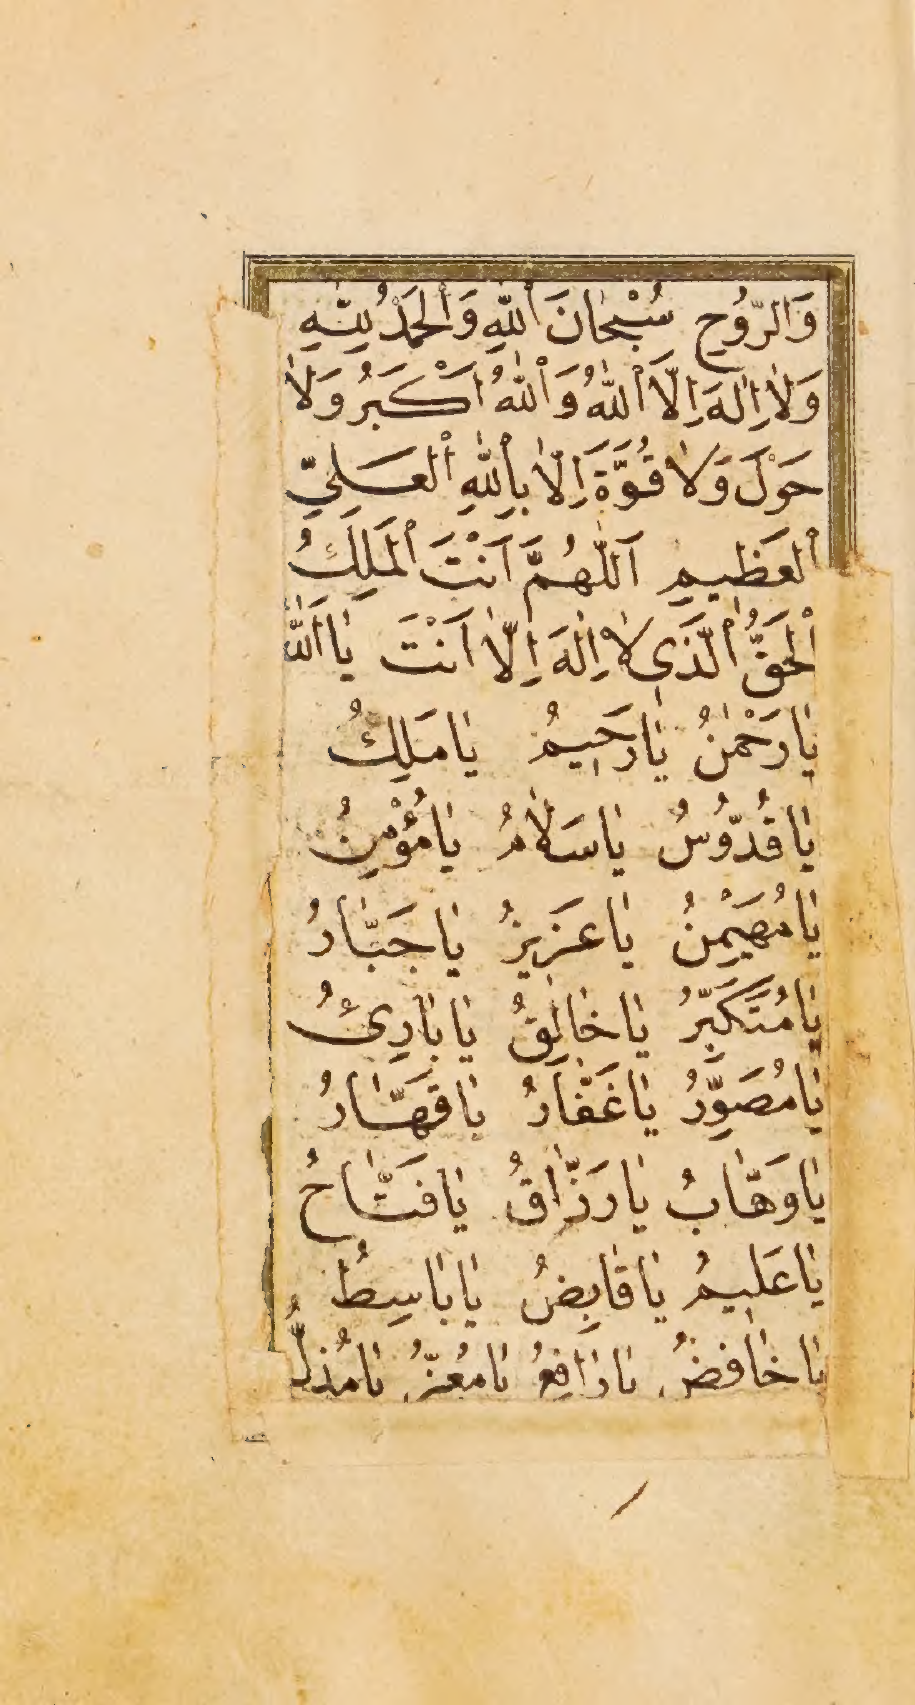 وَالرُّوحِ سُبْحَانَ اللّٰهِ وَالْحَمْدُ لِلّٰهِ
وَلَا اِلٰهَ اِلَّا اللّٰهُ وَاللّٰهُ اَكْبَرُ وَلَا
حَوْلَ وَلَا قُوَّةَ اِلَّا بِاللّٰهِ الْعَلِيِّ
الْعَظِيمِ اَللّٰهُمَّ اَنْتَ الْمَلِكُ
الْحَقُّ الَّذِى لَا اِلٰهَ اِلَّا اَنْتَ يَا اَللّٰهُ
يَا رَحْمٰنُ يَا رَحِيمُ يَا مَلِكُ
يَا قُدُّوسُ يَا سَلَامُ يَا مُؤْمِنُ
يَا مُهَيْمِنُ يَا عَزِيزُ يَا جَبَّارُ
يَا مُتَكَبِّرُ يَا خَالِقُ يَا بَارِئُ
يَا مُصَوِّرُ يَا غَفَّارُ يَا قَهَّارُ
يَا وَهَّابُ يَا رَزَّاقُ يَا فَتَّاحُ
يَا عَلِيمُ يَا قَابِضُ يَا بَاسِطُ
يَا خَافِضُ يَا رَافِعُ يَا مُعِزُّ يَا مُذِلُّ